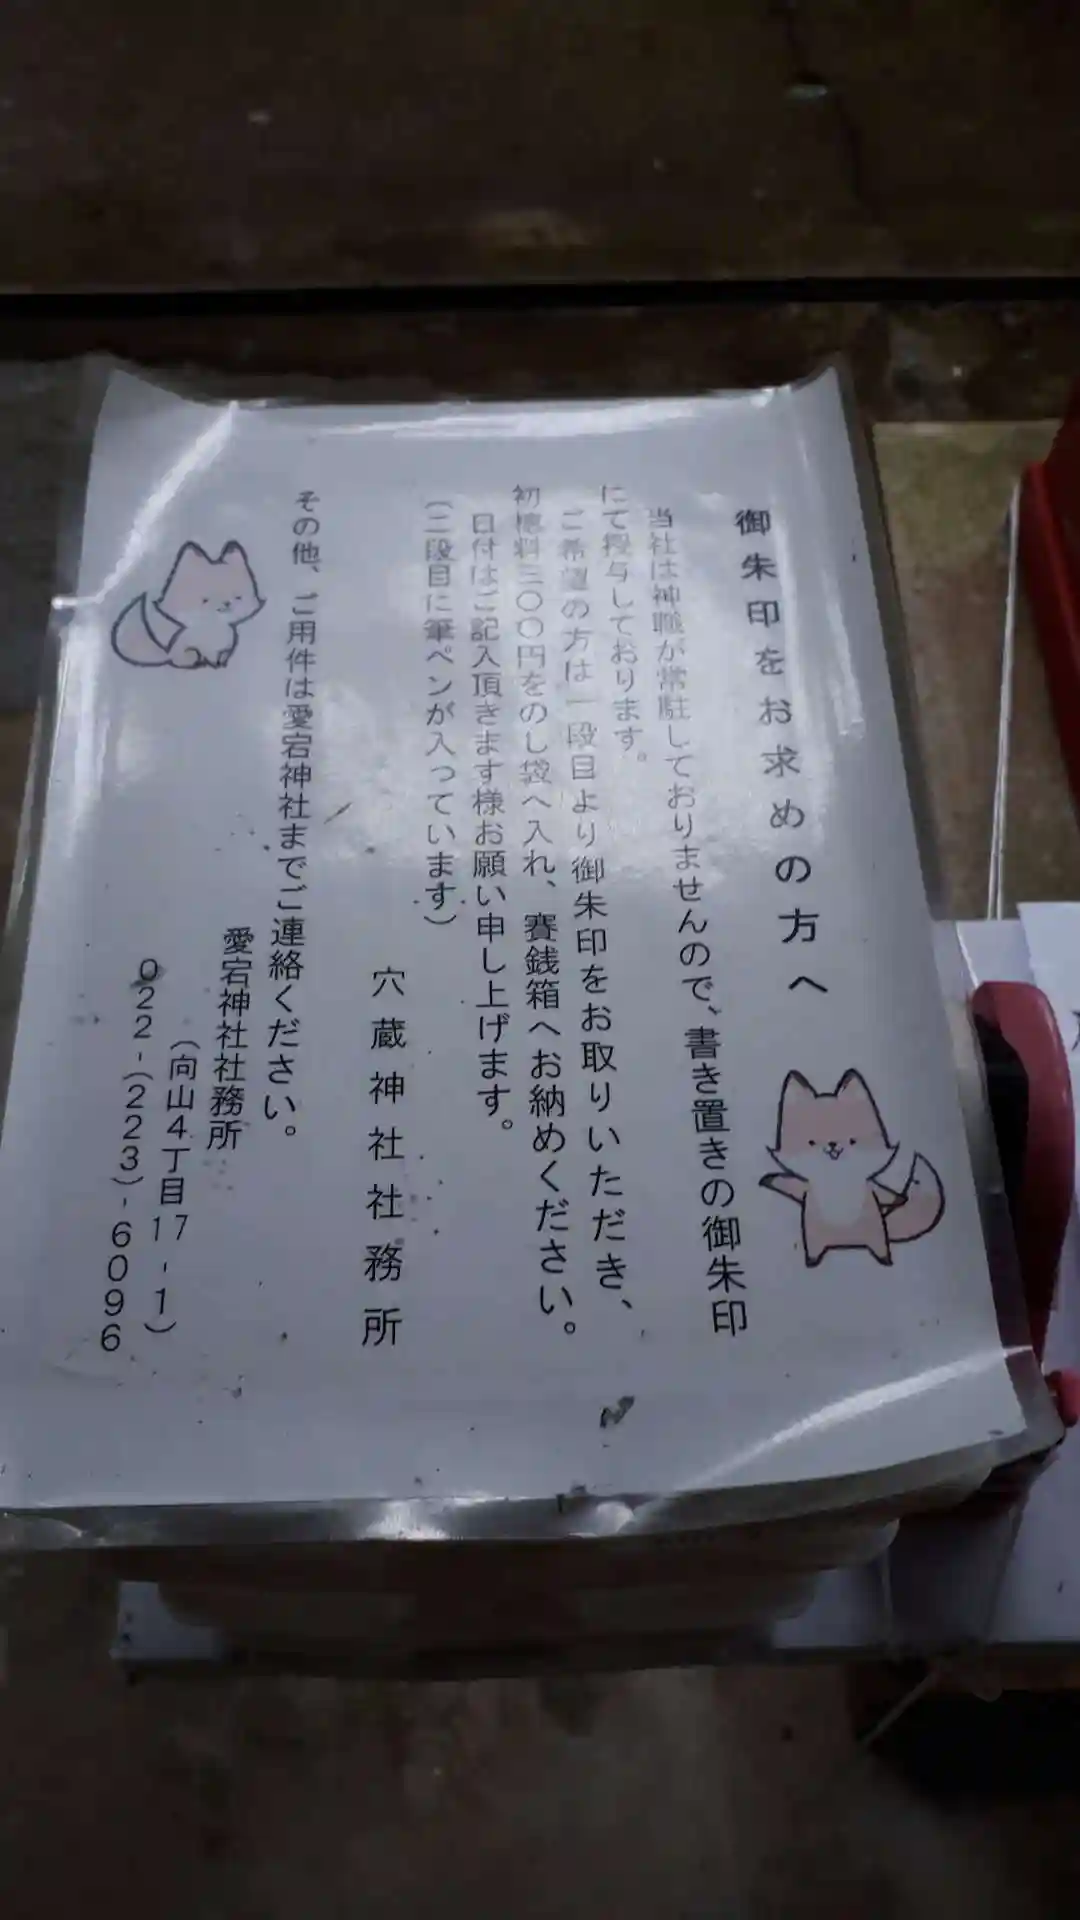 御朱印をお求めの方へ
当社は神職が常駐しておりませんので、書き置きの御朱印
にて授与しております。
ご希望の方は一段目より御朱印をお取りいただき、
初穂料三〇〇円をのし袋へ入れ、賽銭箱へお納めください。
日付はご記入頂きます様お願い申し上げます。
(二段目に筆ペンが入っています)
穴蔵神社社務所
その他、ご用件は愛宕神社までご連絡ください。
愛宕神社社務所
(向山4丁目17-1)
022-(223)-6096